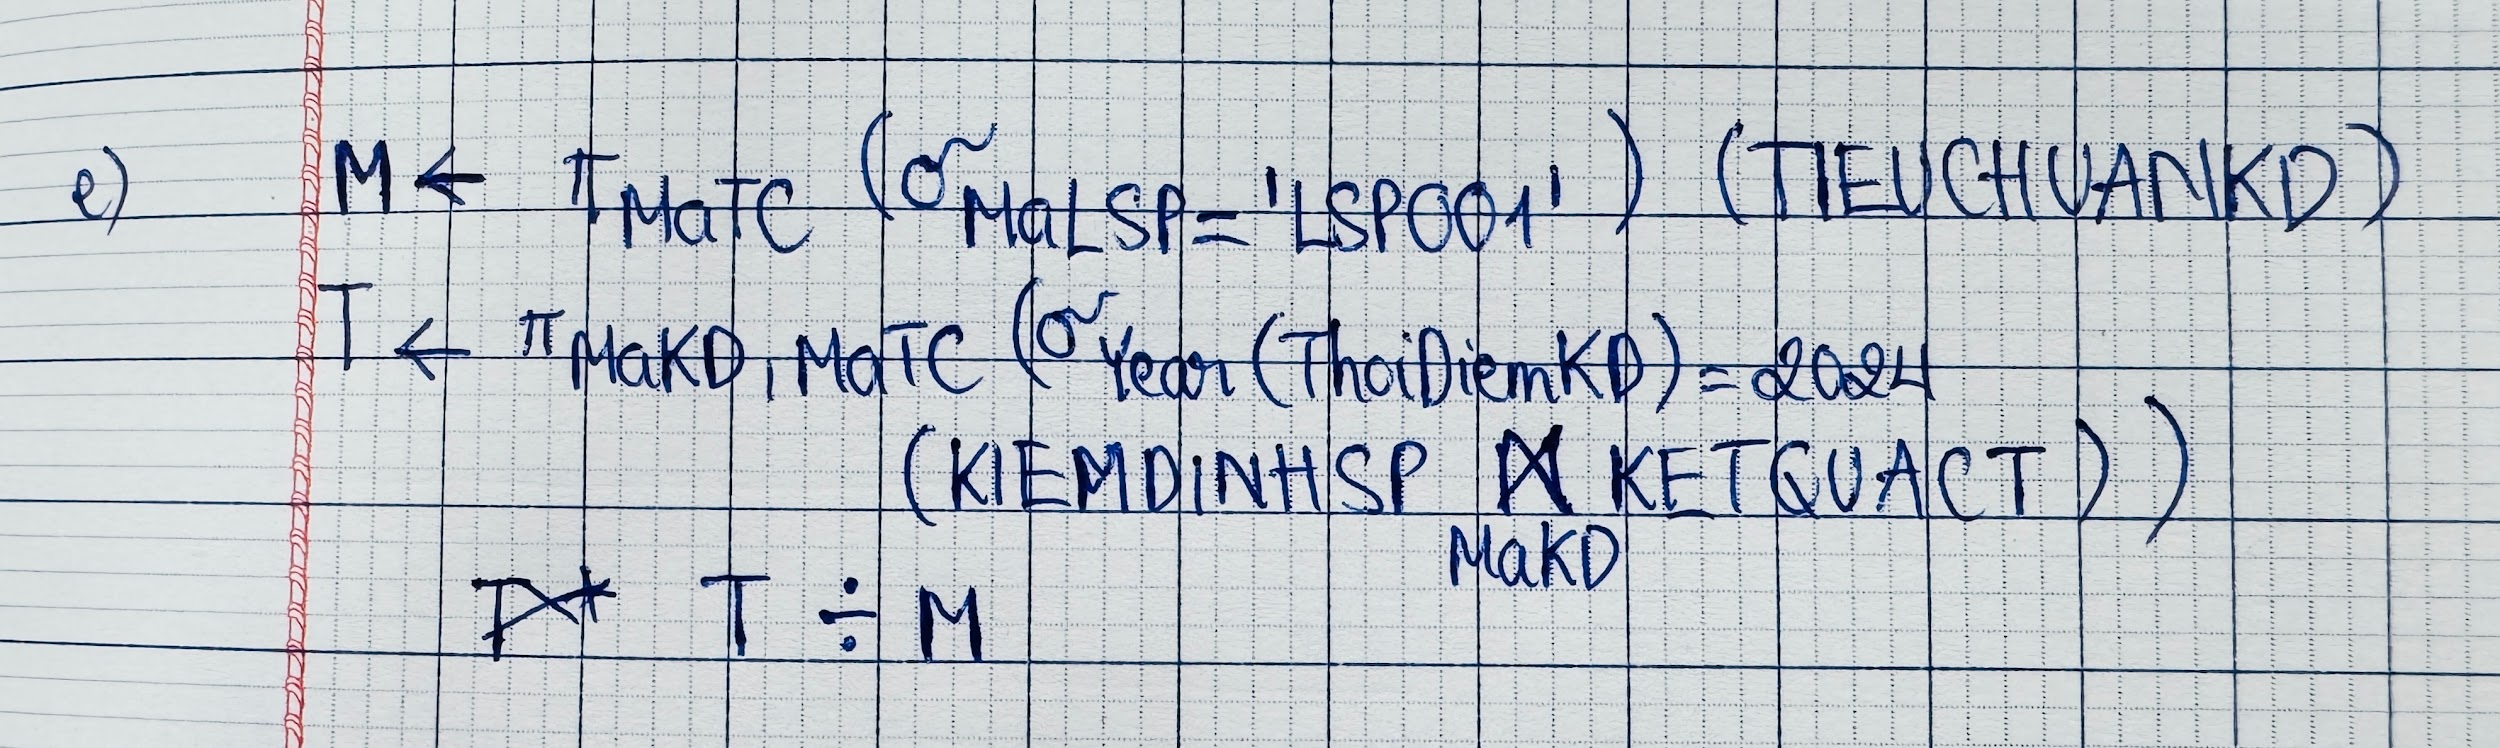 e) M ← π MaTC (σ MaLSP = 'LSP001') (TIEUCHUANKD)
T ← π MaKD, MaTC (σ Year(ThoiDiemKD) = 2024
(KIEMDiNHSP ⋈ KETQUACT))
MaKD
T ÷ M